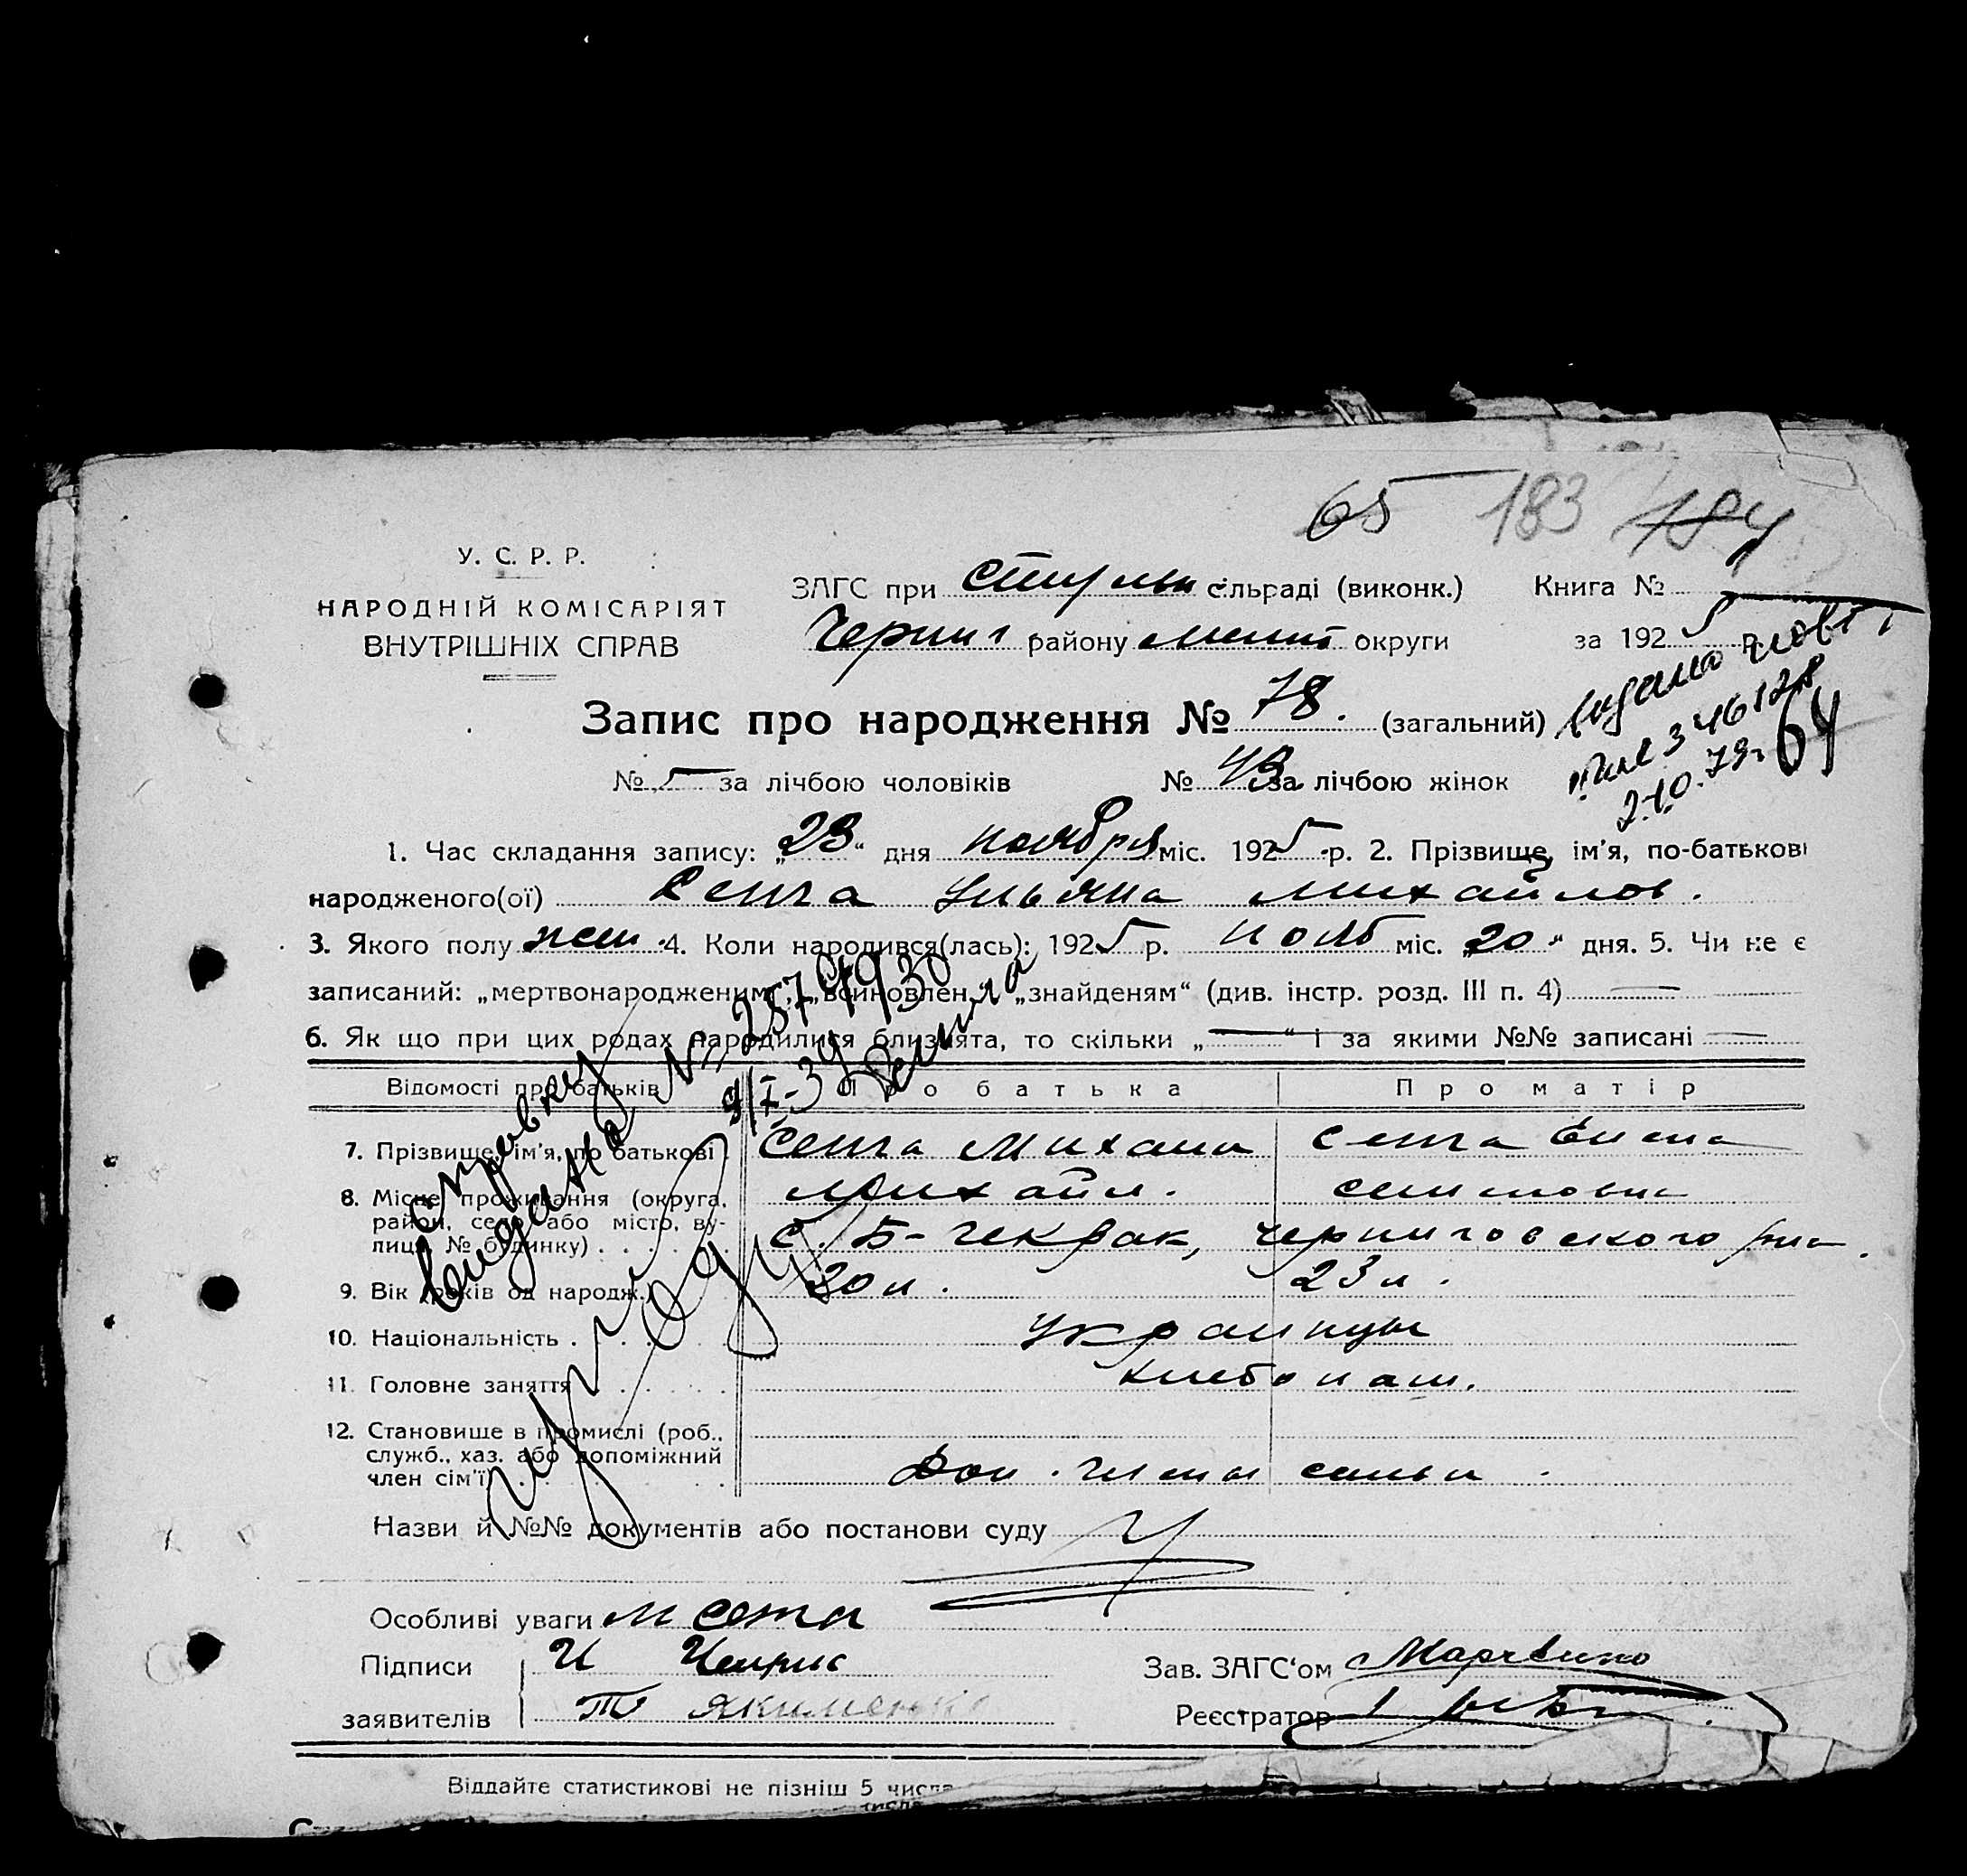 65 183 184
У. С. Р. Р.
НАРОДНІЙ КОМІСАРІЯТ
ВНУТРІШНІХ СПРАВ
ЗАГС при сільраді (виконк.) Книга №
Черниг району Мелит округи за 1925 р.
Запис про народження № 78. (загальний)
№ за лічбою чоловіків № 43 за лічбою жінок
видано повт
346128
2.10.79г
64
1. Час складання запису: „23“ дня ноября міс. 1925 р. 2. Прізвище, ім'я, по-батькові
народженого(ої) Септа Ульяна Михайлов.
3. Якого полу жен. 4. Коли народився(лась): 1925 р. нояб міс. „20“ дня. 5. Чи не є
записаний: „мертвонародженим“, „всиновлен „знайденям“ (див. інстр. розд. III п. 4)
6. Як що при цих родах народилися близнята, то скільки „—“ і за якими №№ записані —
Справку
видана №
Відомості про батьків Про батька Про матір
7. Прізвище, ім'я, по батькові Септа Михаил Септа Елена
8. Місце проживання (округа, Михайл. 
район, село або місто, ву-
лиця, № будинку) с. Б-Чекрак, Черниговского
9. Вік (років од народж.) 30 л. 23 л.
10. Національність Украинцы
11. Головне заняття хлебопаш.
12. Становище в промислі (роб.,
служб., хаз. або допоміжний
член сім'ї) Доп. члены семьи.
Назви й №№ документів або постанови суду
Особливі уваги М Септа
Підписи И
заявителів Т Якименко
Зав. ЗАГС'ом
Реєстратор
Віддайте статистикові не пізніш 5 числа